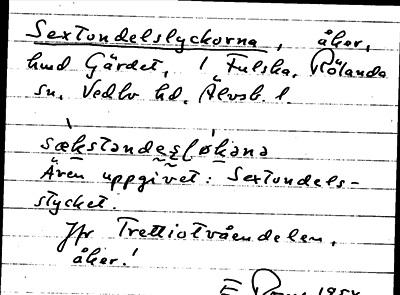 Sextondelslyckorna, åker,
hmd Gärdet, i Fulska, Rölanda
sn, Vedbo hd, Älvsb. l.
sækstəndəsļøkəna
Även uppgivet: Sextondels-
stycket.
Jfr Trettiotvåendelen,
åker!
1954